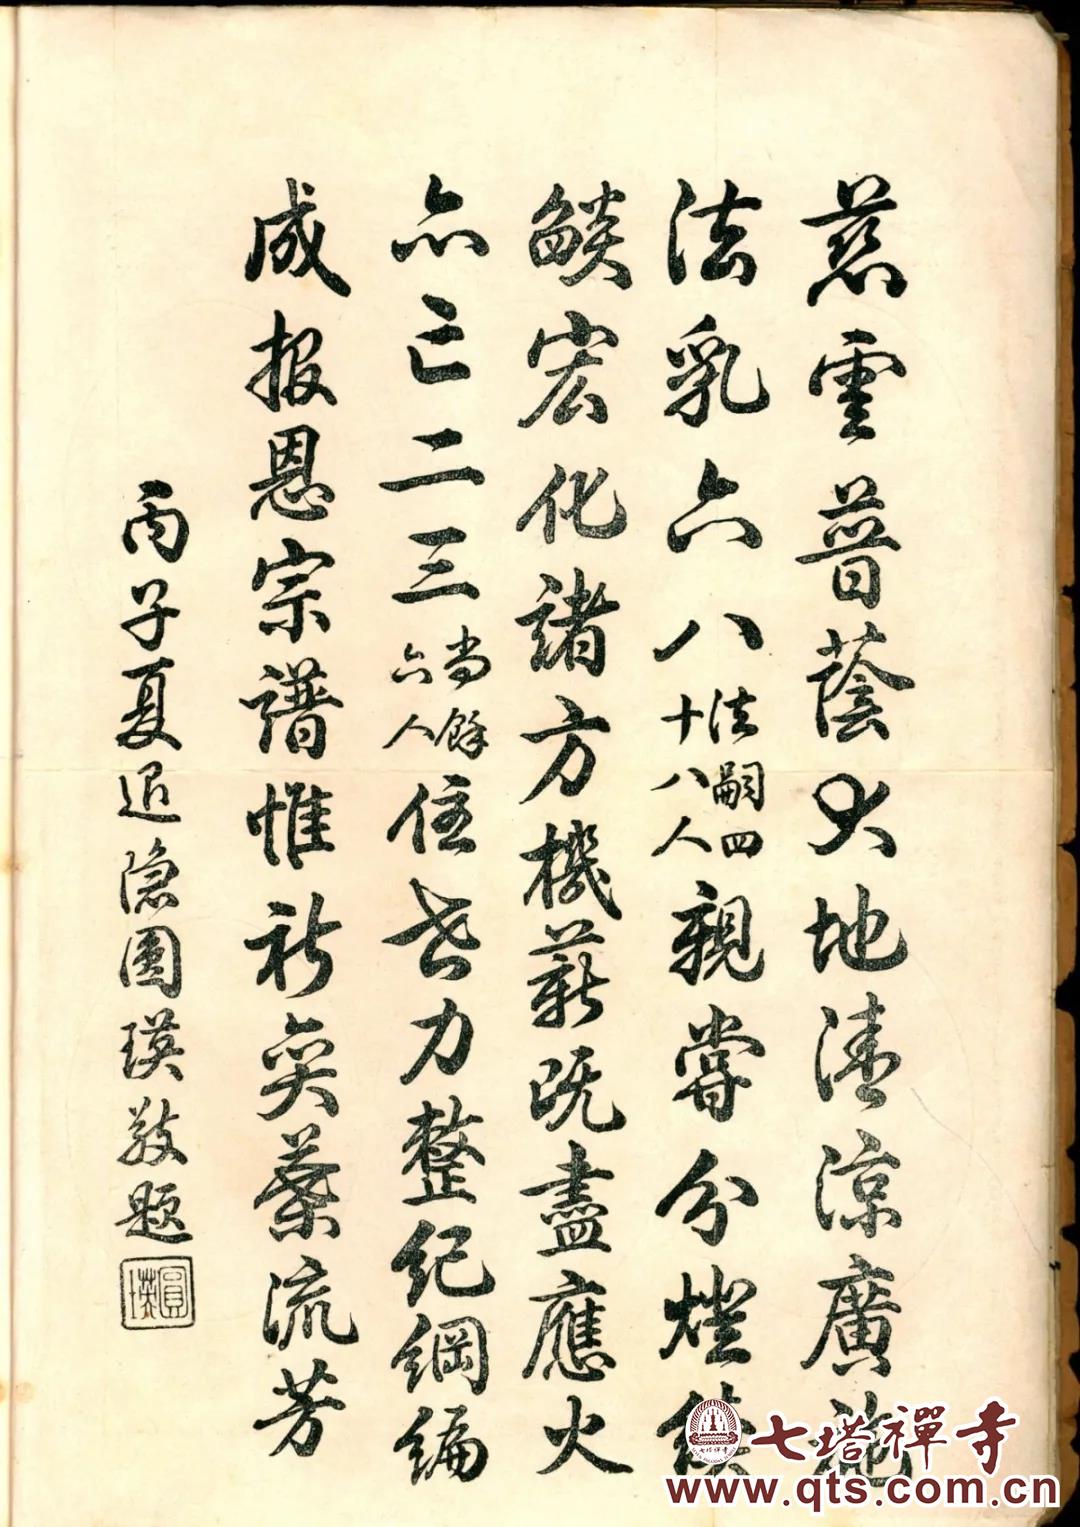 慈雲普蔭大地清涼廣施
法乳六八法嗣四十八人親嘗分燈續
燄宏化諸方機薪既盡應火
亦亡二三尚餘六人住世力整紀綱編
成報恩宗譜惟祈奕葉流芳
丙子夏退隱圓瑛敬題
圓瑛
七塔禪寺
www.qts.com.cn